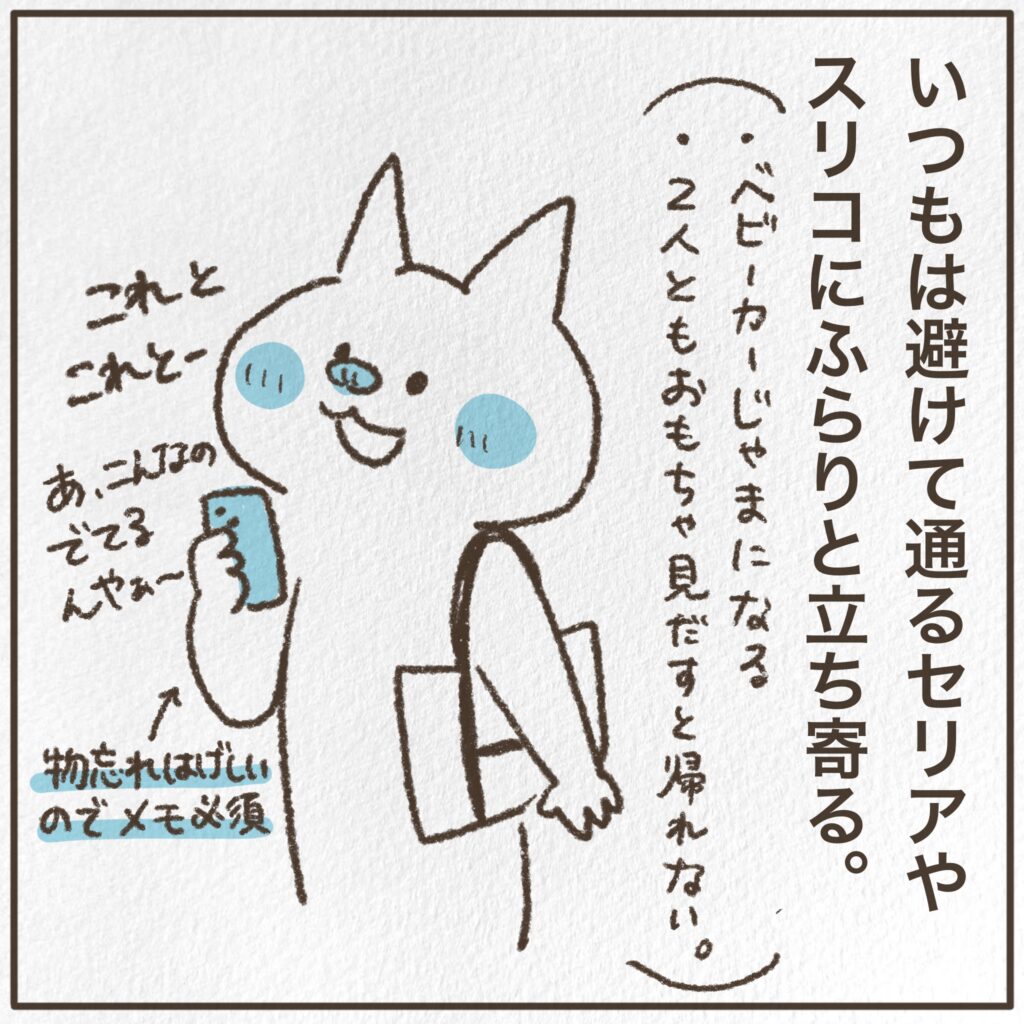 いつもは避けて通るセリアや
スリコにふらりと立ち寄る。
(・ベビーカーじゃまになる
・2人ともおもちゃ見だすと帰れない。)
これと
これとー
あ、こんなの
でてる
んやぁ〜
物忘れはげしい
のでメモ必須